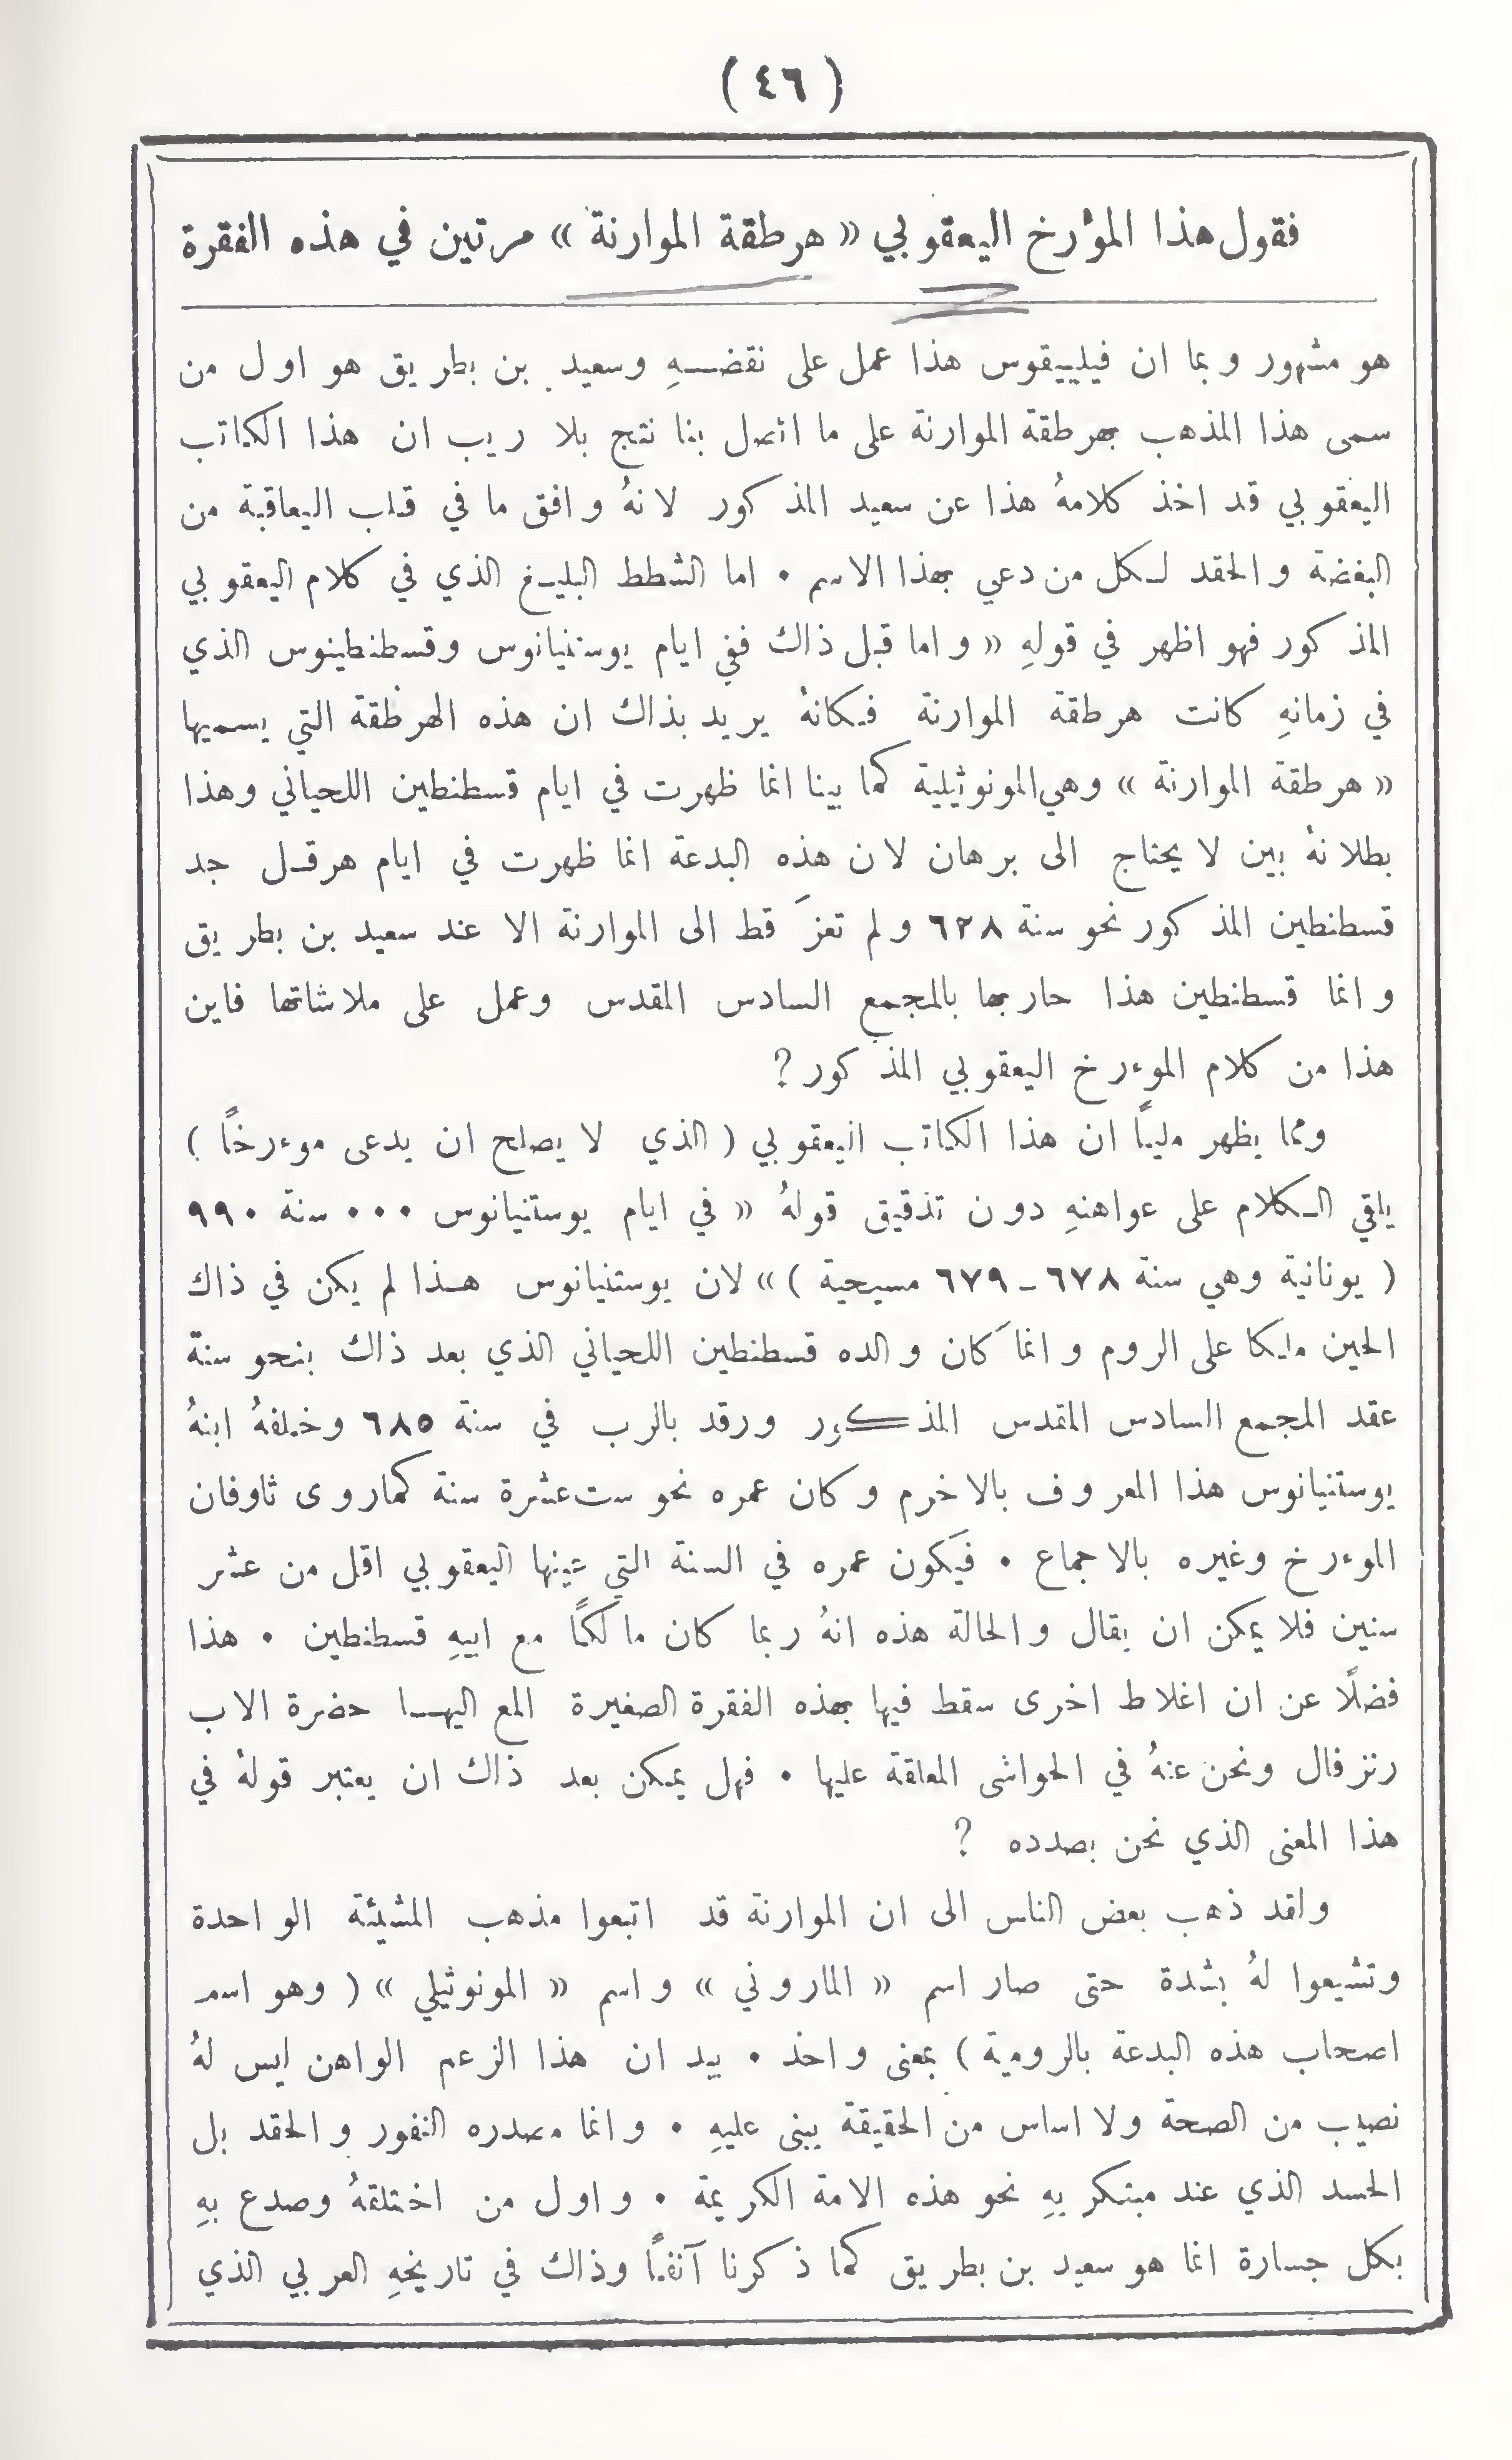 ( ٤٦ )
فقول هذا المؤرخ اليعقوبي « هرطقة الموارنة » مرتين في هذه الفقرة
هو مشهور وبما ان فيلييقوس هذا عمل على نقضـــهِ وسعيد بن بطريق هو اول من
سمى هذا المذهب بهرطقة الموارنة على ما اتصل بنا نتج بلا ريب ان هذا الكاتب
اليعقوبي قد اخذ كلامهُ هذا عن سعيد المذكور لانهُ وافق ما في قلب اليعاقبة من
البغضة والحقد لـكل من دعي بهذا الاسم • اما الشطط البليغ الذي في كلام اليعقوبي
المذكور فهو اظهر في قولهِ « واما قبل ذلك ففي ايام يوستنيانوس وقسطنطينوس الذي
في زمانهِ كانت هرطقة الموارنة فـكانهُ يريد بذلك ان هذه الهرطقة التي يسميها
« هرطقة الموارنة » وهي المونوثيلية كما بينا انما ظهرت في ايام قسطنطين اللحياني وهذا
بطلانهُ بين لا يحتاج الى برهان لان هذه البدعة انما ظهرت في ايام هرقـل جد
قسطنطين المذكور نحو سنة ٦٢٨ ولم تعزَ قط الى الموارنة الا عند سعيد بن بطريق
وانما قسطنطين هذا حاربها بالمجمع السادس المقدس وعمل على ملاشاتها فاين
هذا من كلام الموءرخ اليعقوبي المذكور ?
ومما يظهر مليـًا ان هذا الكاتب اليعقوبي ( الذي لا يصلح ان يدعى موءرخًا )
يلقي الـكلام على عواهنهِ دون تدقيق قولهُ « في ايام يوستنيانوس ••• سنة ٩٩٠
( يونانية وهي سنة ٦٧٨ ــ ٦٧٩ مسيحية ) » لان يوستنيانوس هـذا لم يكن في ذلك
الحين ملـكا على الروم وانما كان والده قسطنطين اللحياني الذي بعد ذلك بنحو سنة
عقد المجمع السادس المقدس المذكور ورقد بالرب في سنة ٦٨٥ وخلفهُ ابنهُ
يوستنيانوس هذا المعروف بالاخرم وكان عمره نحو ست عشرة سنة كما روى ثاوفان
الموءرخ وغيره بالاجماع • فيكون عمره في السنة التي عينها اليعقوبي اقل من عشر
سنين فلا يمكن ان يقال والحالة هذه انهُ ربما كان مالكًا مع ابيهِ قسطنطين • هذا
فضلًا عن ان اغلاط اخرى سقط فيها بهذه الفقرة الصغيرة المع اليهــا حضرة الاب
رنزفال ونحن عنهُ في الحواشى المعلقة عليها • فهل يمكن بعد ذلك ان يعتبر قولهُ في
هذا المعنى الذي نحن بصدده ?
ولقد ذهب بعض الناس الى ان الموارنة قد اتبعوا مذهب المشيئة الواحدة
وتشيعوا لهُ بشدة حتى صار اسم « الماروني » واسم « المونوثيلي » ( وهو اسم
اصحاب هذه البدعة بالرومية ) بمعنى واحد • بيد ان هذا الزعم الواهن ليس لهُ
نصيب من الصحة ولا اساس من الحقيقة يبنى عليهِ • وانما مصدره النفور والحقد بل
الحسد الذي عند مبتكريهِ نحو هذه الامة الكريمة • واول من اختلقهُ وصدع بهِ
بكل جسارة انما هو سعيد بن بطريق كما ذكرنا آنفـًا وذلك في تاريخهِ العربي الذي